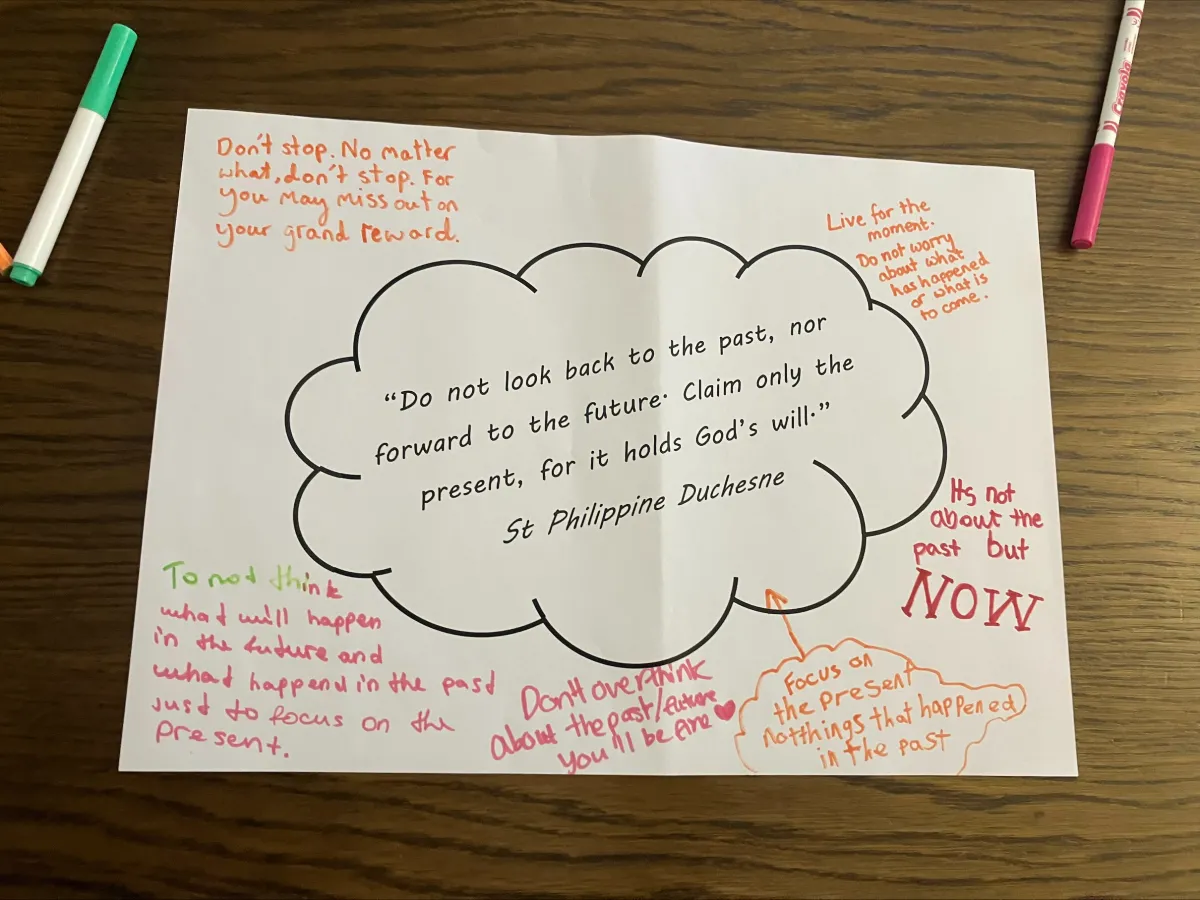 Crayola
Don't stop. No matter
what, don't stop. For
you may miss out on
your grand reward.
Live for the
moment.
Do not worry
about what
has happened
or what is
to come.
“Do not look back to the past, nor
forward to the future. Claim only the
present, for it holds God's will.”
St Philippine Duchesne
Its not
about the
past but
NOW
To not think
what will happen
in the future and
what happend in the past
just to focus on the
present.
Don't overthink
about the past/future
you'll be fine
Focus on
the present
notthings that happened
in the past